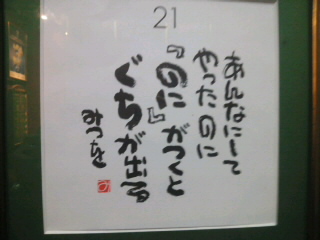 21
あんなにして
やったのに
『のに』がつくと
ぐちが出る
みつを